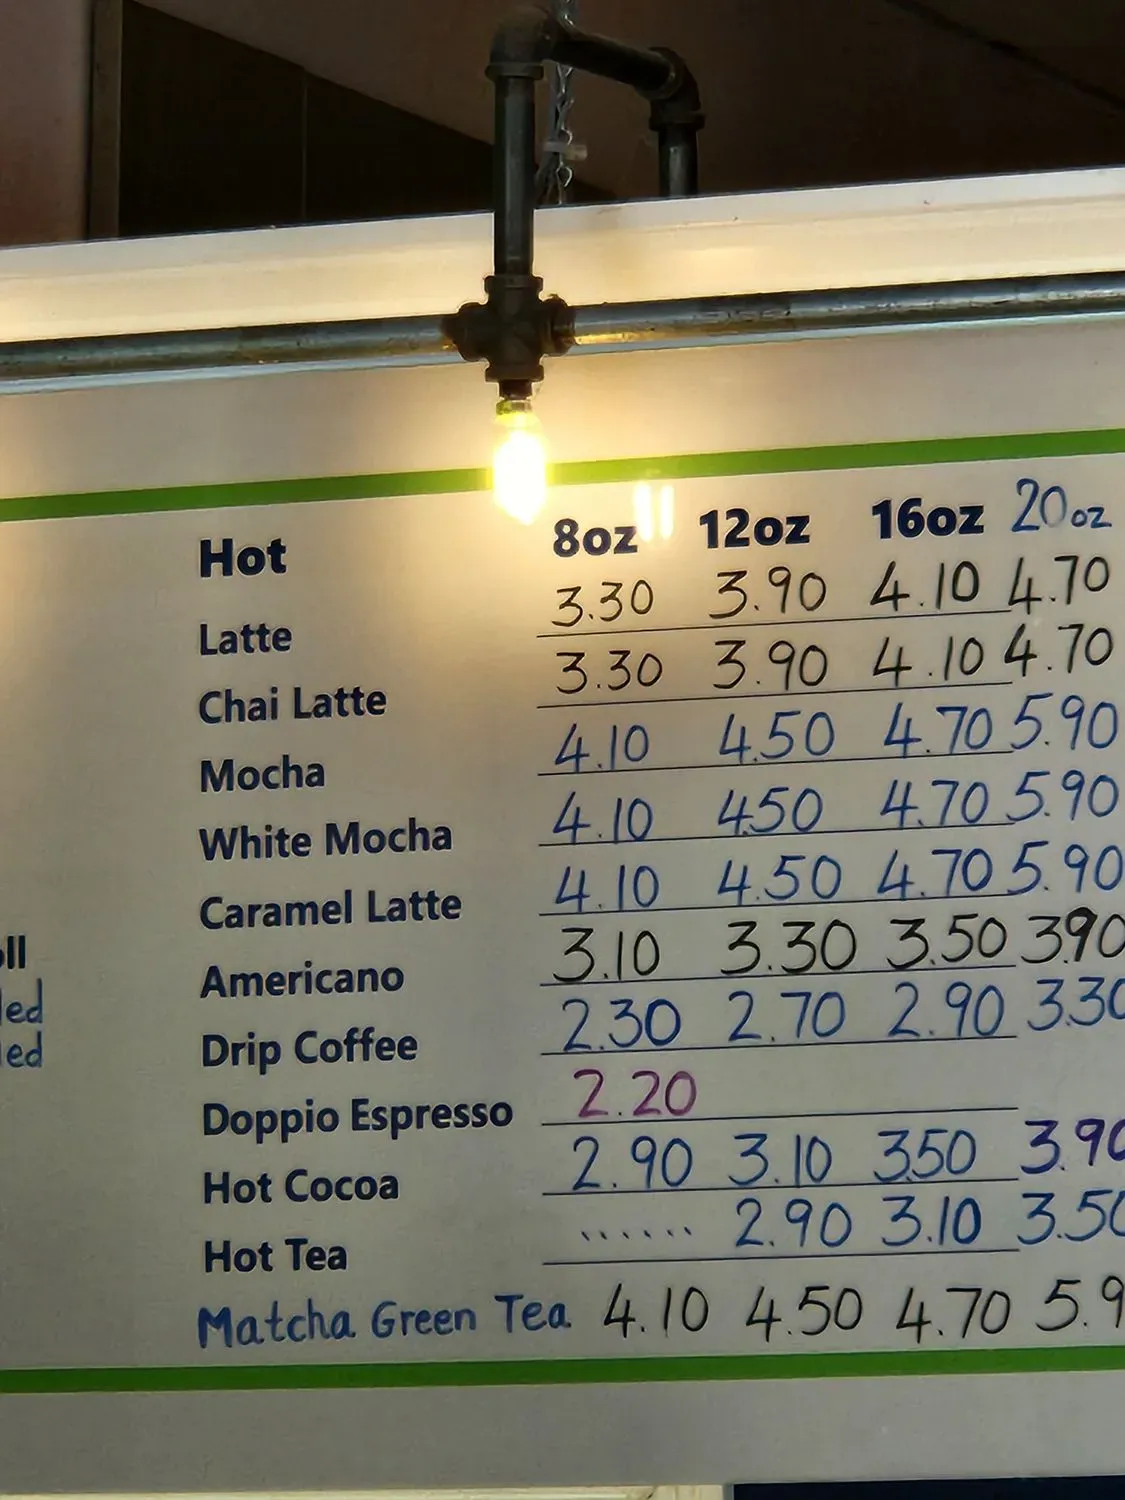 Hot 8oz 12oz 16oz 20oz
Latte 3.30 3.90 4.10 4.70
Chai Latte 3.30 3.90 4.10 4.70
Mocha 4.10 4.50 4.70 5.90
White Mocha 4.10 450 4.70 5.90
Caramel Latte 4.10 4.50 4.70 5.90
Americano 3.10 3.30 3.50 390
Drip Coffee 2.30 2.70 2.90 3.30
Doppio Espresso 2.20
Hot Cocoa 2.90 3.10 350 3.90
Hot Tea ...... 2.90 3.10 3.50
Matcha Green Tea 4.10 4.50 4.70 5.9